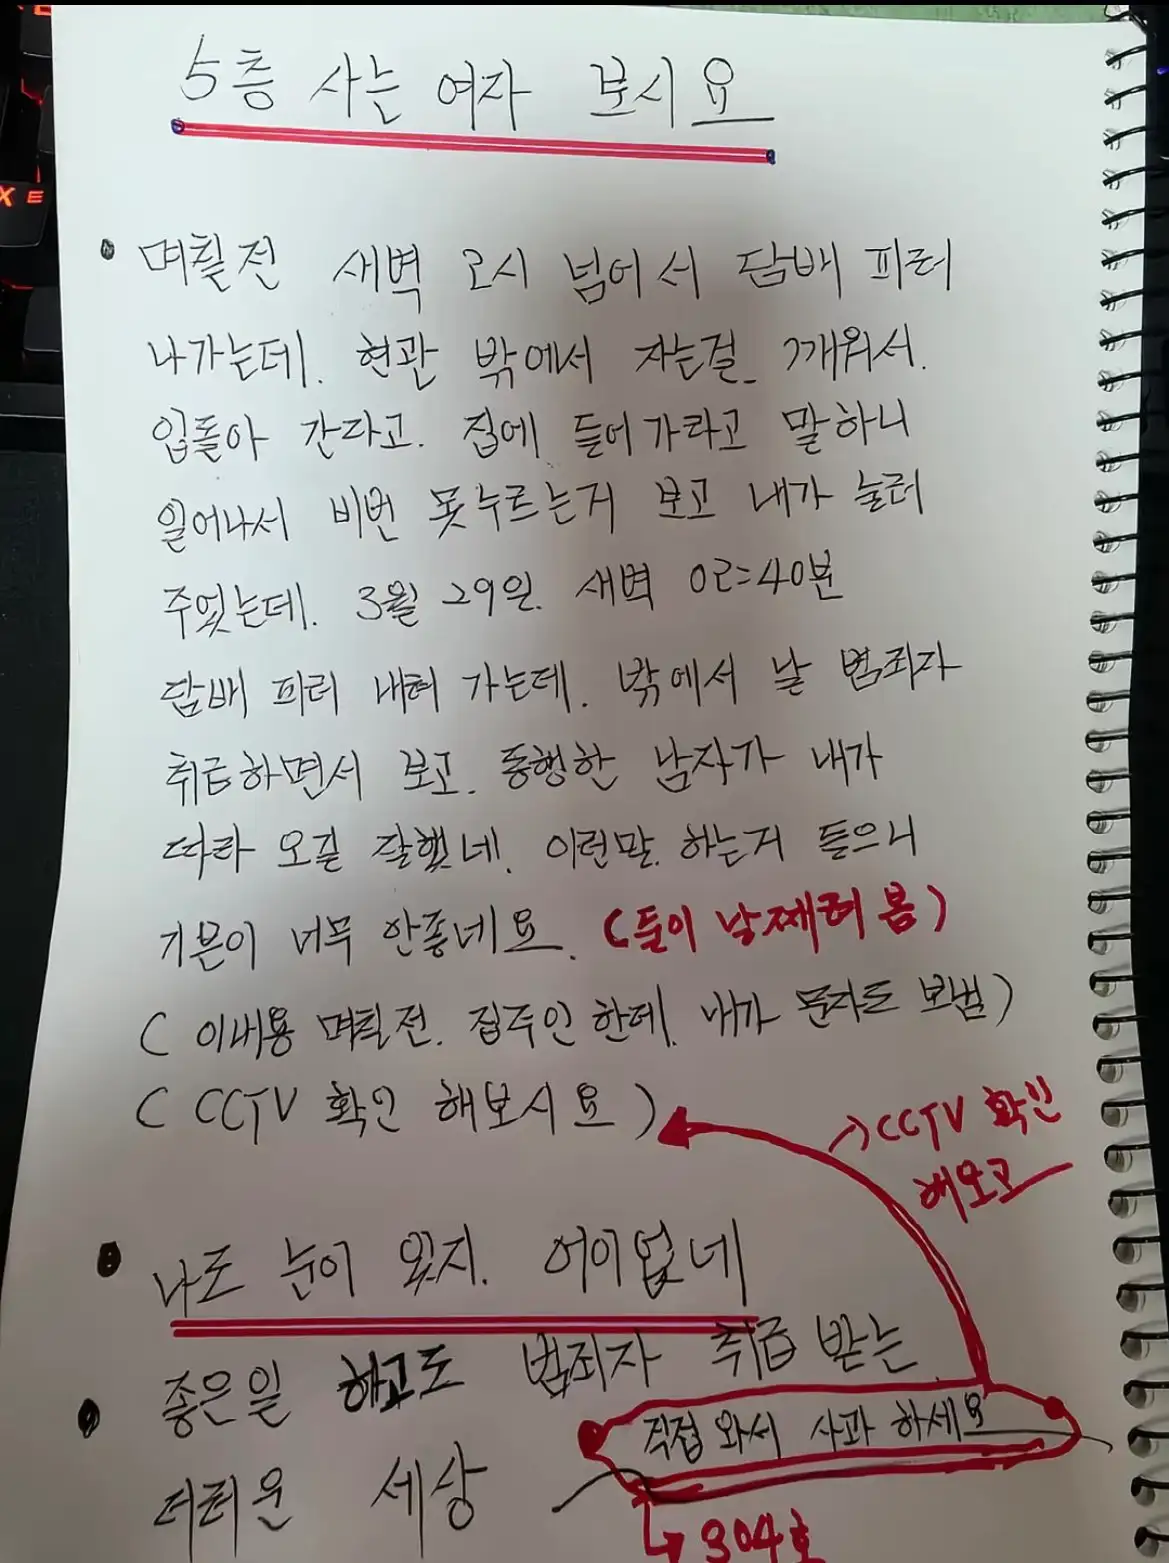 5층 사는 여자 보시요
• 며칠전 새벽 2시 넘어서 담배 피러
나가는데. 현관 밖에서 자는걸 깨워서.
입돌아 간다고. 집에 들어가라고 말하니
일어나서 비번 못누르는거 보고 내가 눌러
주었는데. 3월 29일. 새벽 02:40분
담배 피러 내려 가는데. 밖에서 날 범죄자
취급하면서 보고. 동행한 남자가 내가
따라 오길 잘했네. 이런말 하는거 들으니
기분이 너무 안좋네요. (둘이 날 째려 봄)
( 이내용 며칠전. 집주인 한테. 내가 문자도 보냄)
( CCTV 확인 해보시요 )
→ CCTV 확인
해보고
• 나도 눈이 있지. 어이없네
• 좋은일 하고도 범죄자 취급 받는
더러운 세상
직접 와서 사과 하세요
↳ 304호